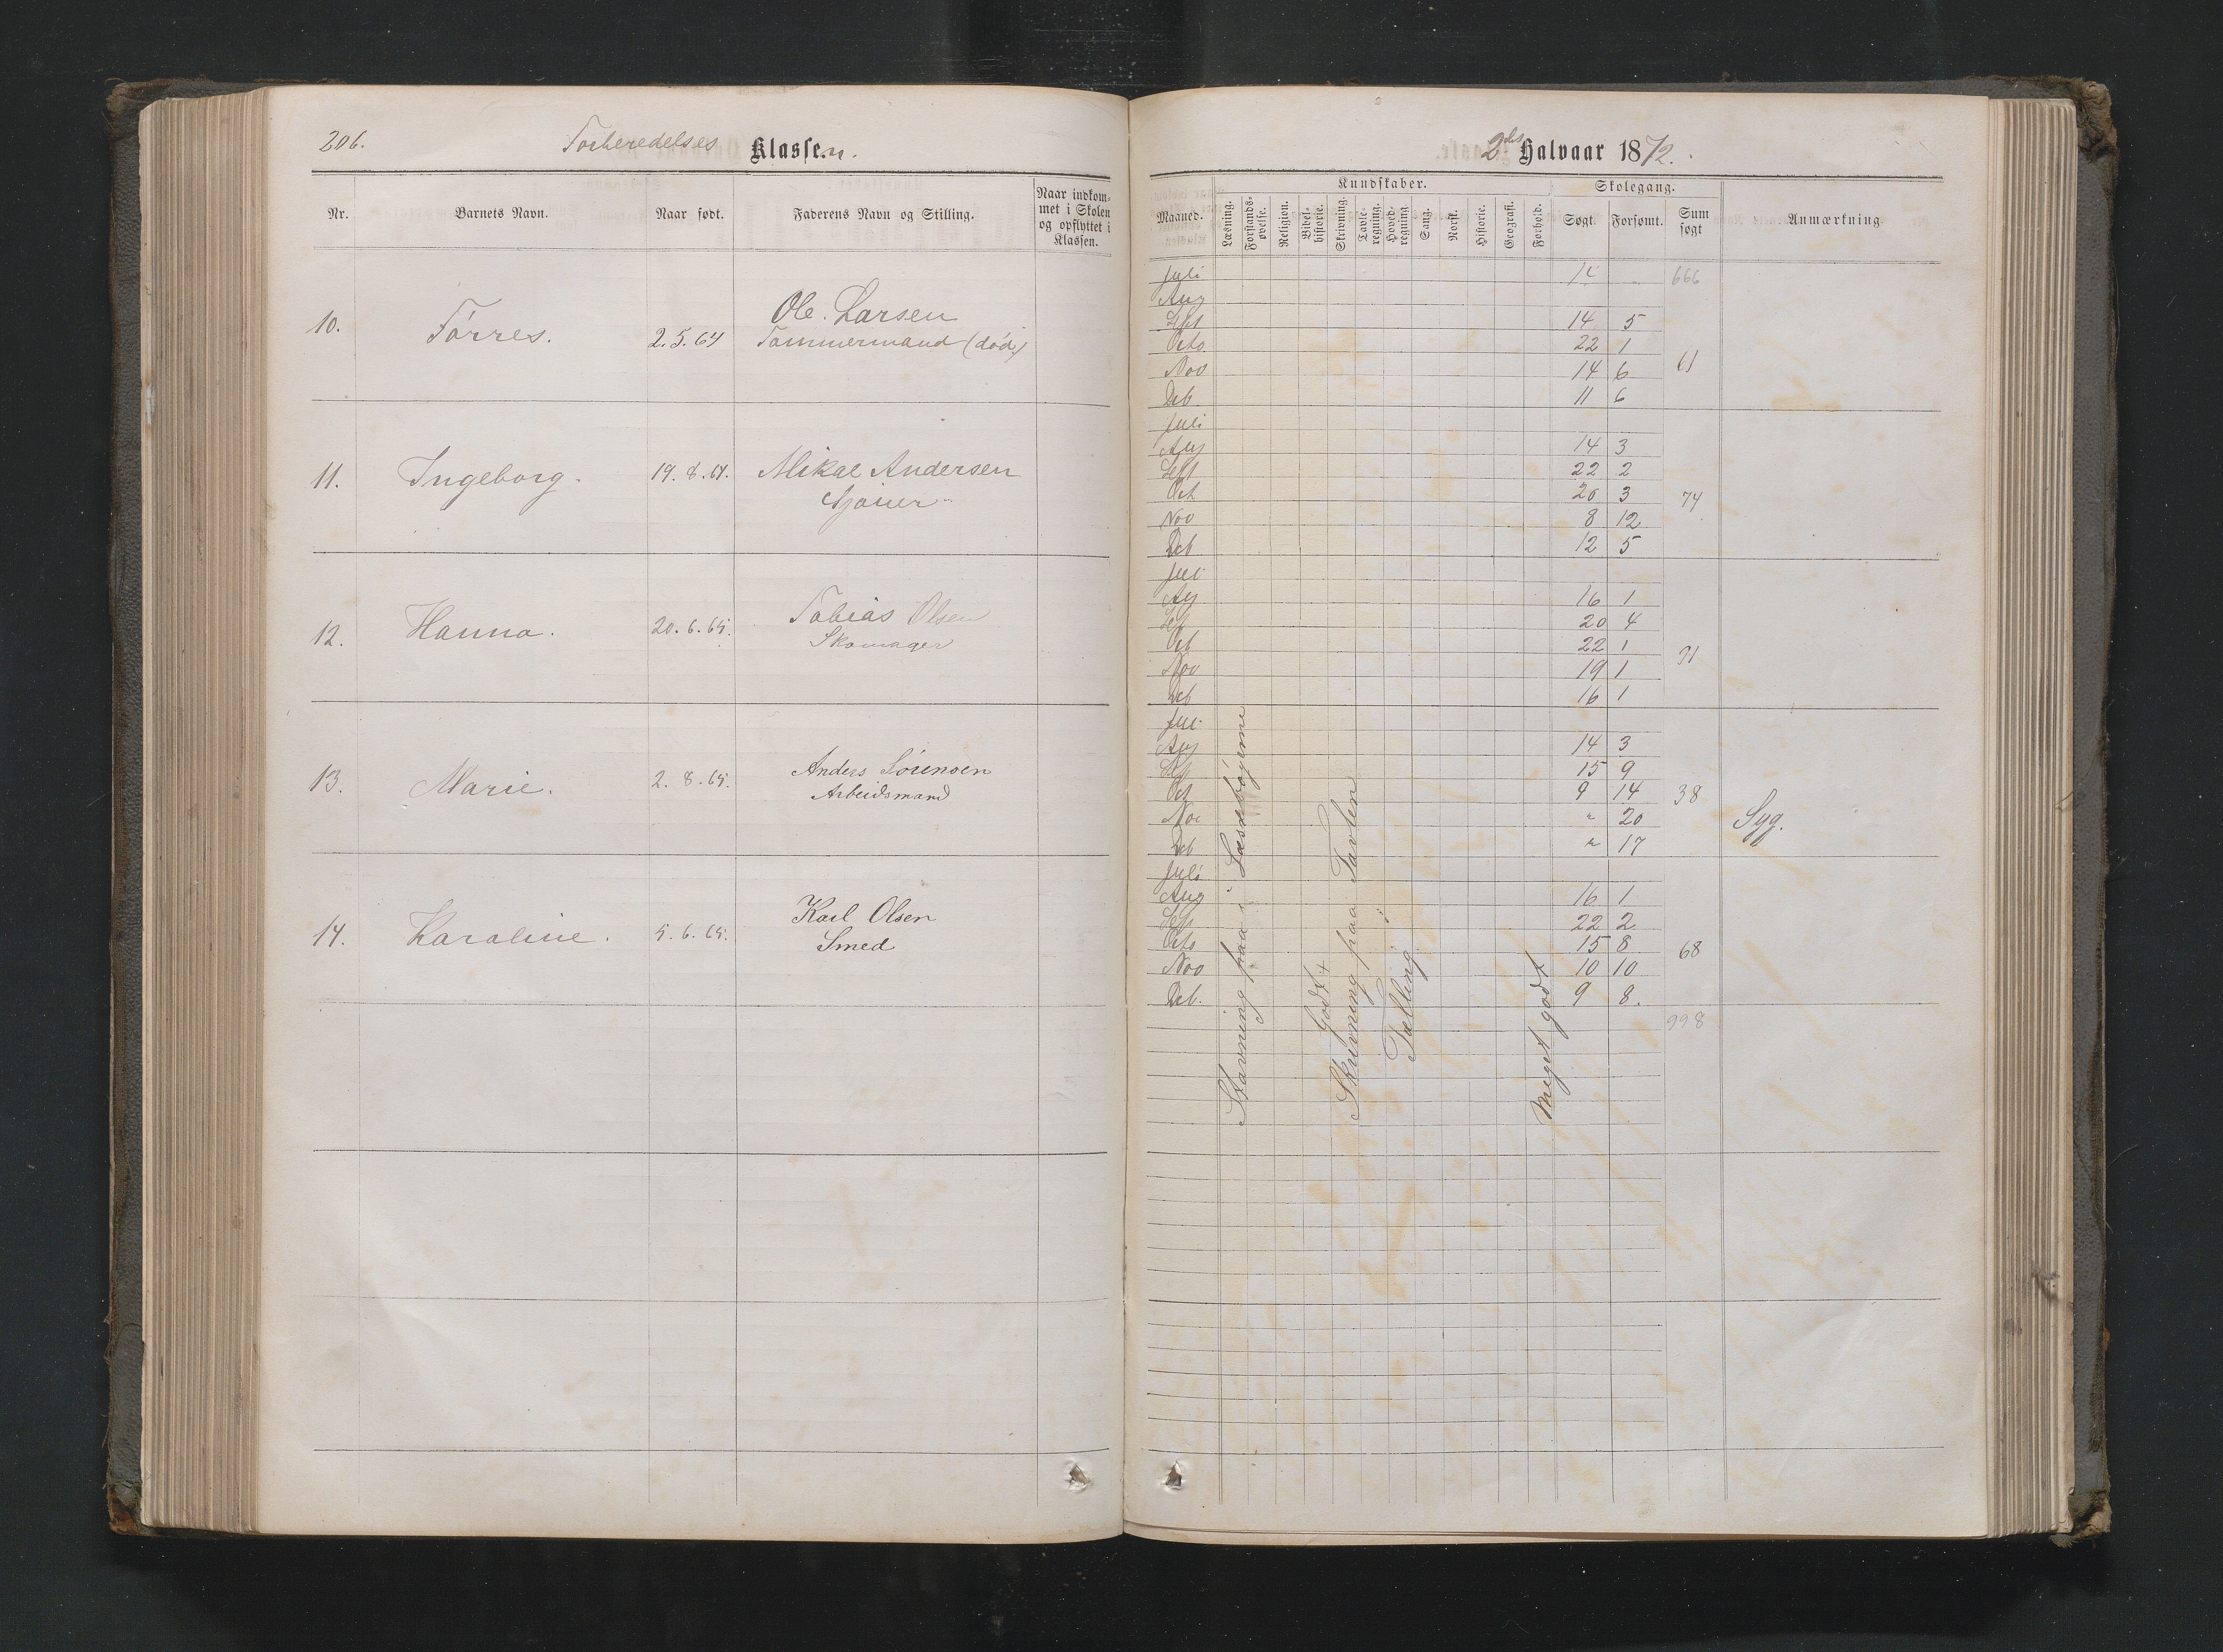 206.
Forberedelses Klassen.
Nr.
Barnets Navn.
Naar født.
Faderens Navn og Stilling.
Naar indkom-
met i Skolen
og opflyttet i
Klassen.
10. Tørres. 2.5.64 Ole Larsen
Tømmermand (død)
11. Ingeborg. 19.8.64. Mikal Andersen
Sjouer
12. Hanna. 20.6.65. Tobias Olsen
Skomager
13. Marie. 2.8.65. Anders Sørensen
Arbeidsmand
14. Karoline. 5.6.65. Karl Olsen
Smed
2det Halvaar 1872.
Kundskaber.
Skolegang.
Maaned.
Læsning.
Forstands-
øvelse.
Religion.
Bibel-
historie.
Skrivning.
Tavle-
regning.
Hoved-
regning
Sang.
Norsk.
Historie.
Geografi.
Forhold.
Søgt.
Forsømt.
Sum
søgt
Anmærkning.
Juli 666
Aug
Sept 14 5
Octo 22 1
Nov 14 6 61
Deb. 11 6
Juli
Aug 14 3
Sept 22 2
Oct 20 3 74
Nov 8 12
Deb 12 5
Juli
Aug 16 1
Sept 20 4
Oct 22 1
Nov 19 1 91
Deb 16 1
Juli
Aug 14 3
Sept 15 9
Oct 9 14 38
Nov " 20 Syg.
Deb " 17
Juli
Aug 16 1
Sept 22 2
Octo 15 8 68
Nov 10 10
Deb. 9 8.
998
Stavning paa i Læsebøgerne
Godt +
Skrivning paa Tavlen
Tælling
Meget godt